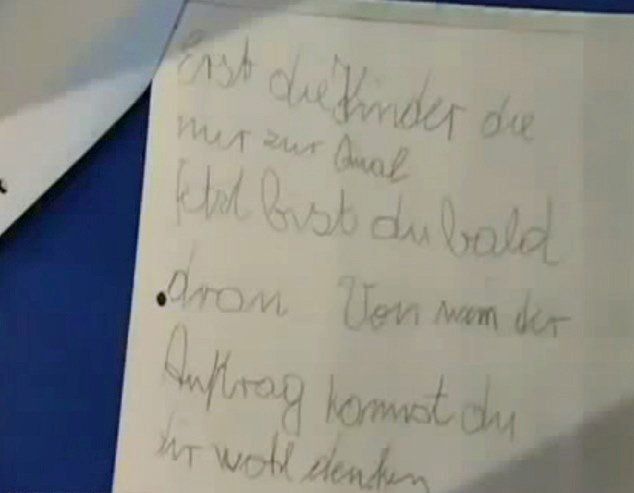 Erst die Kinder die
nur zur Qual
Jetzt bist du bald
dran Von wem der
Auftrag kommst du
dir wohl denken